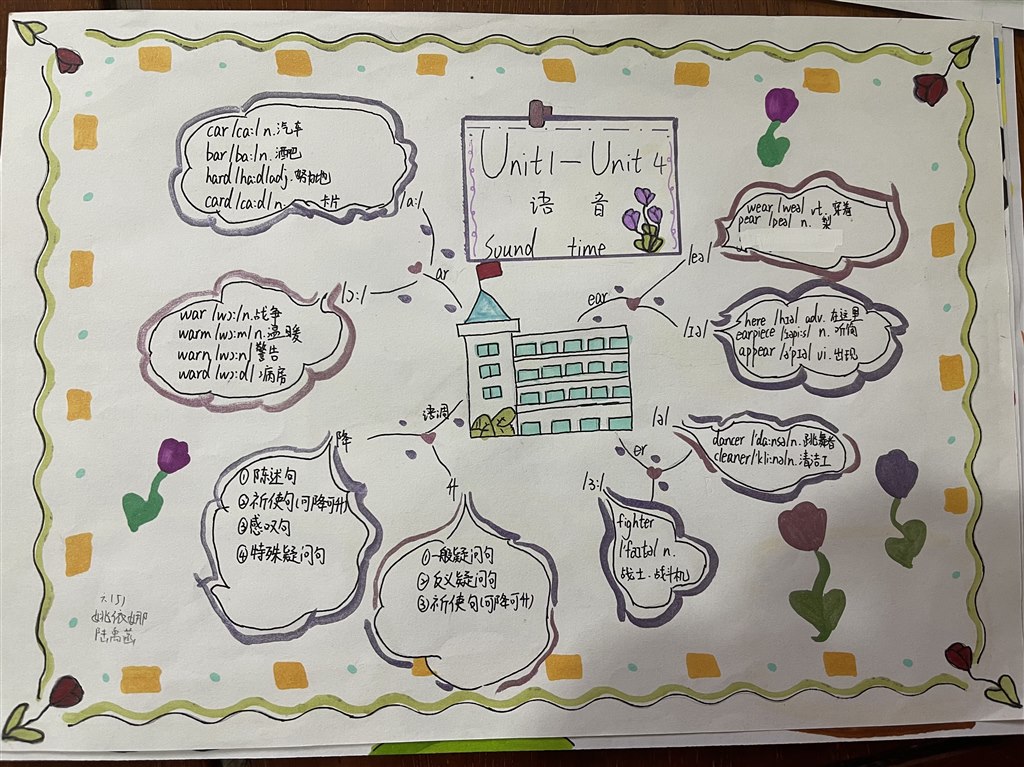 Unit 1 — Unit 4
语音
Sound time
car /ca:/ n. 汽车
bar /ba:/ n. 酒吧
hard /ha:d/ adj. 努力地
card /ca:d/ n. 卡片
/a:/
ar
/ɔ:/
war /wɔ:/ n. 战争
warm /wɔ:m/ n. 温暖
warn /wɔ:n/ 警告
ward /wɔ:d/ 病房
ear
/eə/
wear /weə/ vt. 穿着
pear /peə/ n. 梨
/ɪə/
here /hɪə/ adv. 在这里
earpiece /ɪəpi:s/ n. 听筒
appear /ə'pɪə/ vi. 出现
er
/ə/
dancer /'da:nsə/ n. 跳舞者
cleaner /'kli:nə/ n. 清洁工
/ɜ:/
fighter
/'faɪtə/ n.
战士.战斗机
语调
降
①陈述句
②祈使句(可降可升)
③感叹句
④特殊疑问句
升
①一般疑问句
②反义疑问句
③祈使句(可降可升)
姚依娜